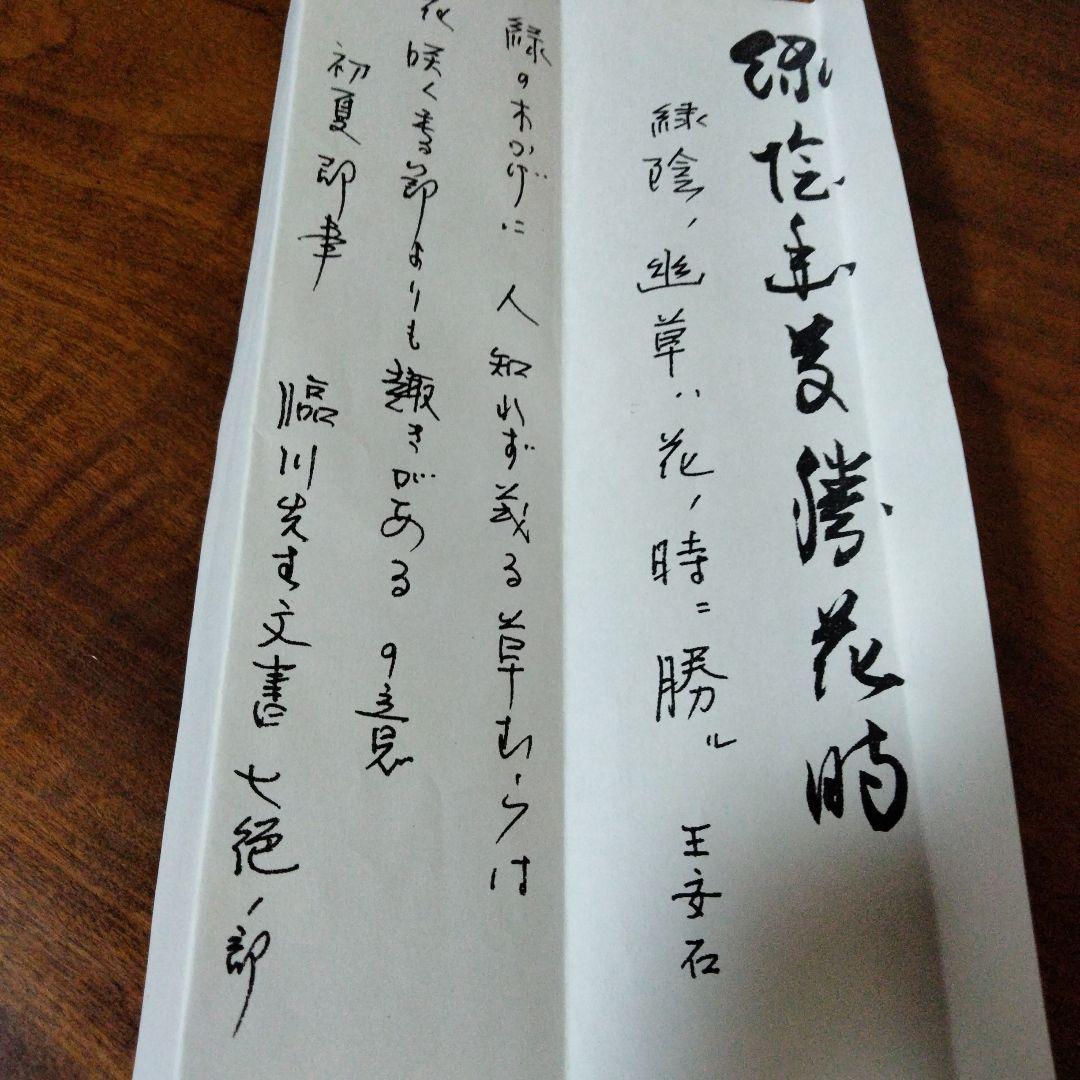 緑陰幽草勝花時
緑陰ノ幽草ハ花ノ時ニ勝ル 王安石
緑の木かげに 人知れず茂る草むらは
花咲く春の節よりも趣きがある の意
初夏即事 臨川先生文書 七絶ノ部